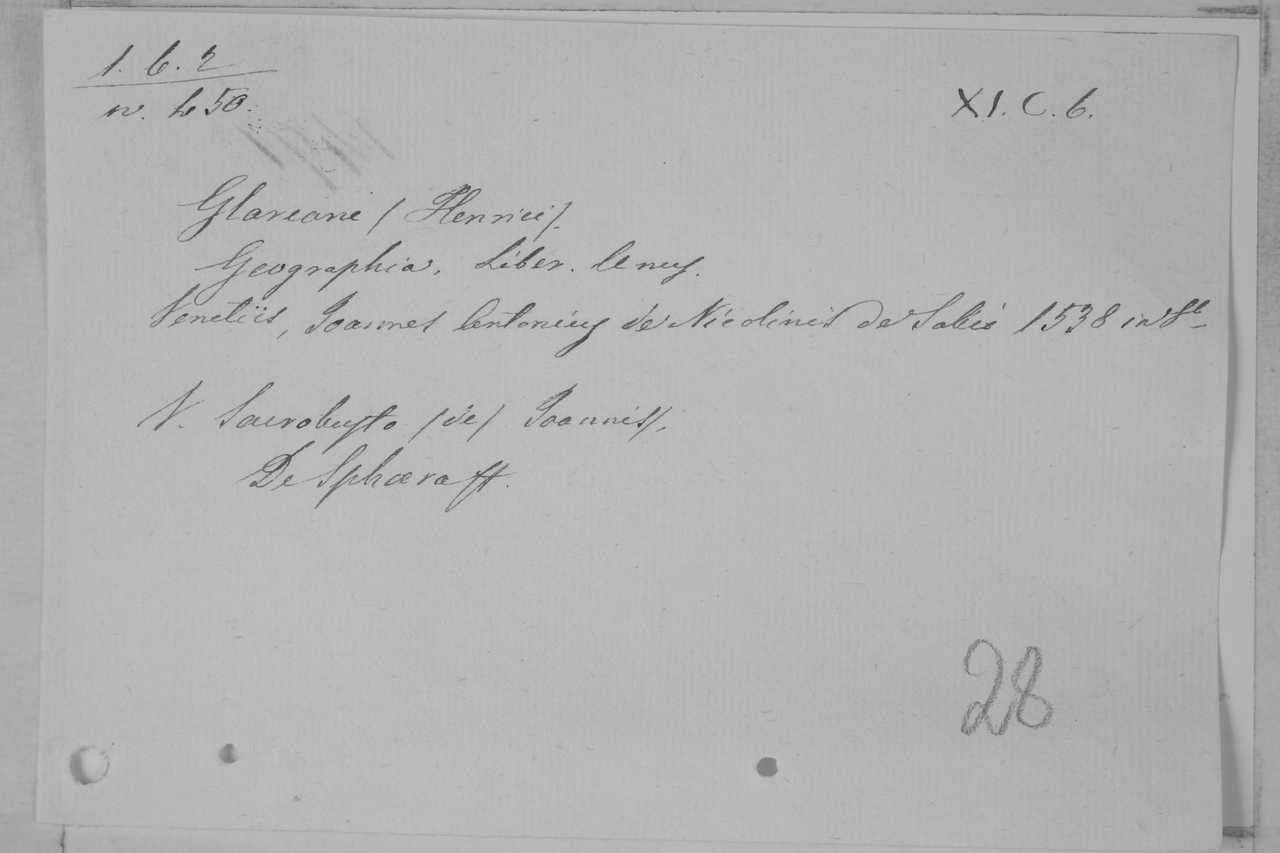 1. 6. 2
XI. C. 6.
n. 450.
Glareani (Henrici).
Geographia. Liber. Unus.
Venetiis, Joannes Antonius de Nicolinis de Sabio 1538 in 8º
V. Sacrobusto (de) Joannis).
De Sphæra ff.
28